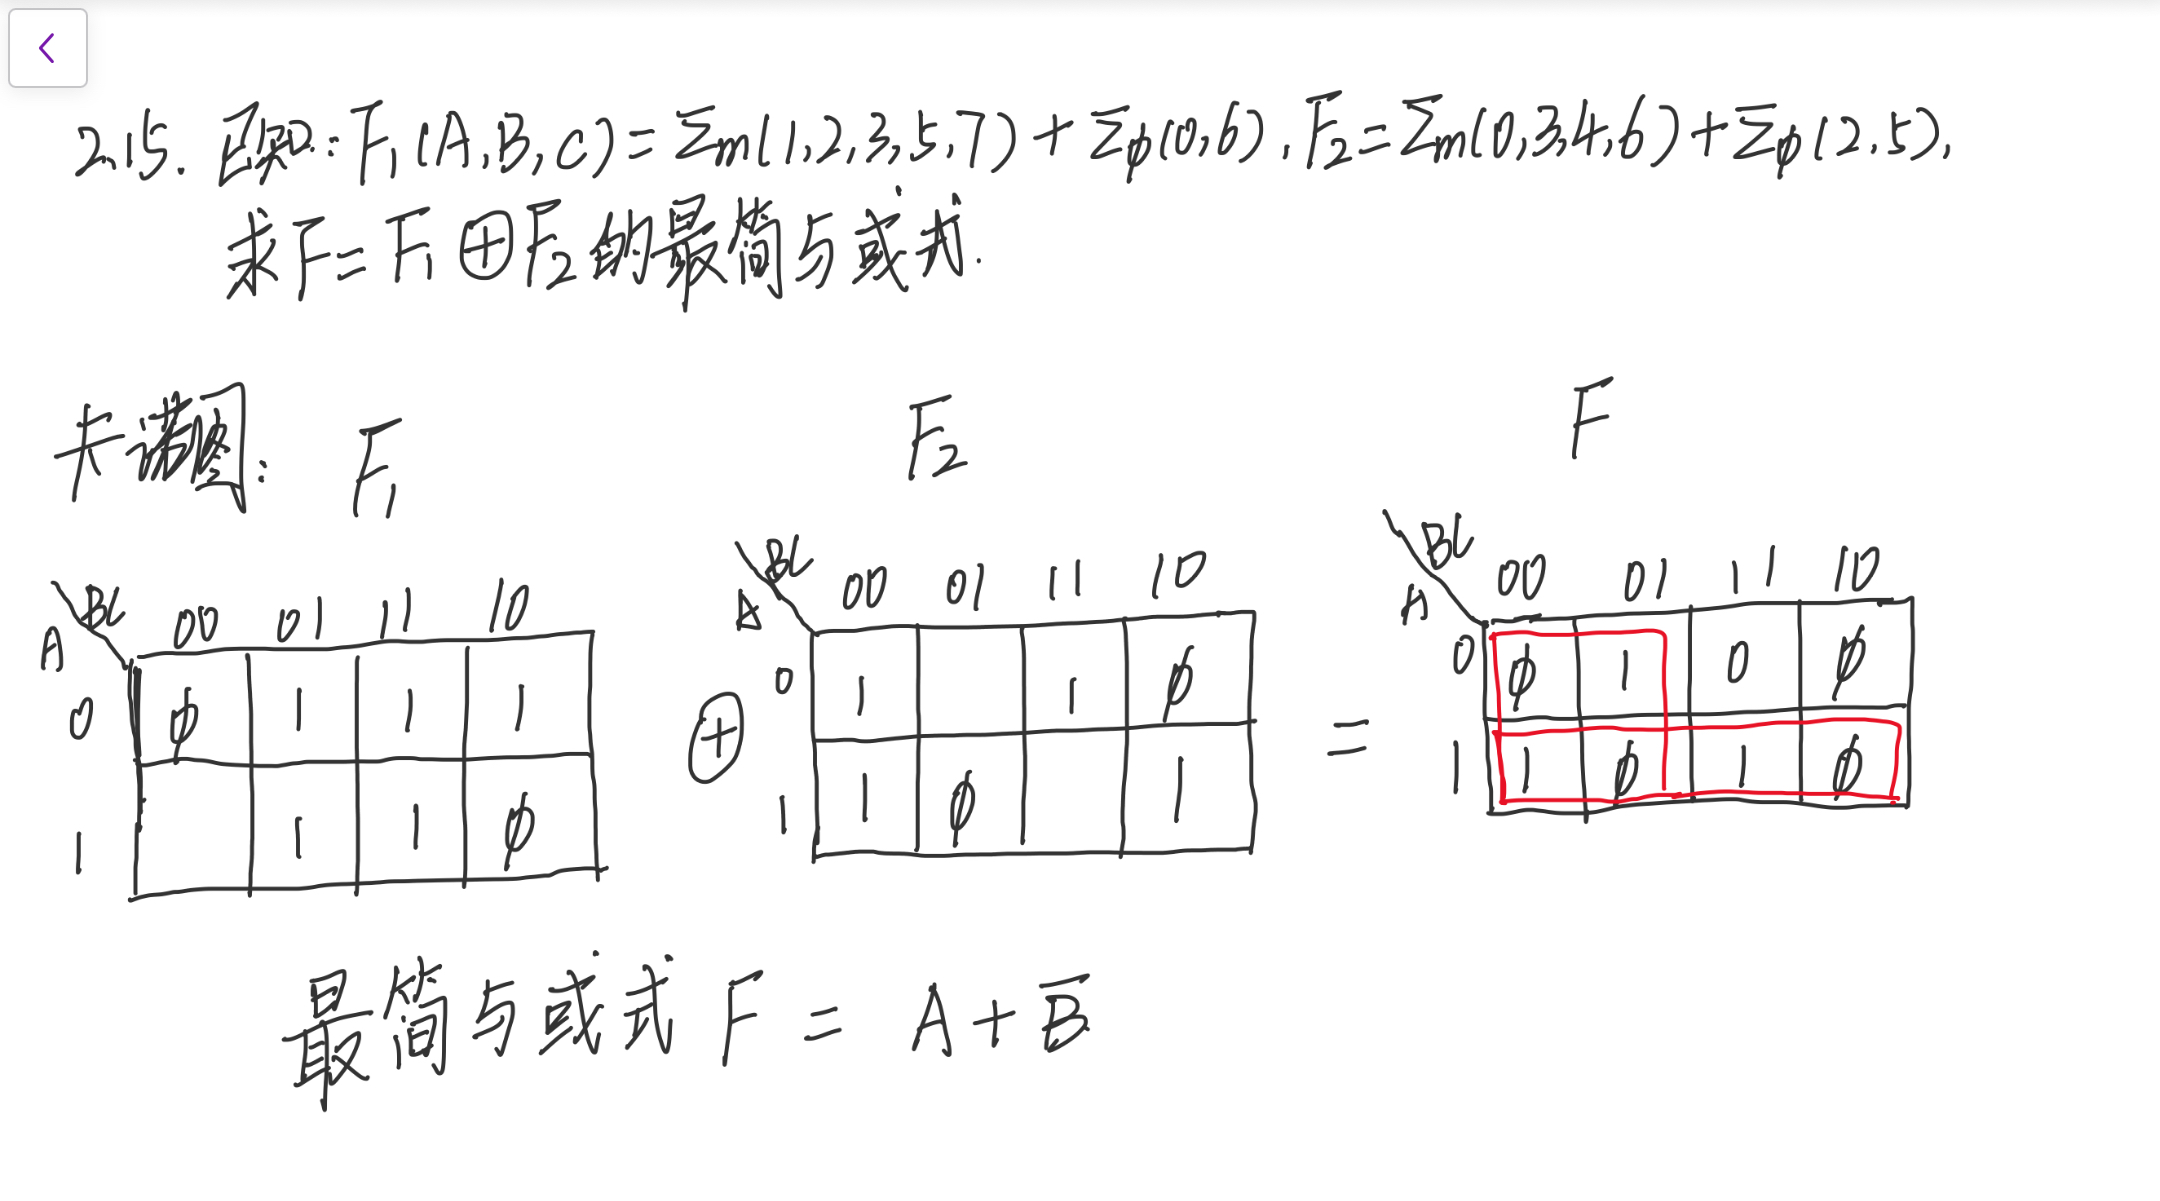 2.15. 已知: F₁(A,B,C)=Σm(1,2,3,5,7)+Σφ(0,6), F₂=Σm(0,3,4,6)+Σφ(2,5),
求F=F₁⊕F₂的最简与或式.
卡诺图: F₁ F₂ F
A BC 00 01 11 10
0 φ 1 1 1
1 1 1 φ
⊕
A BC 00 01 11 10
0 1 1 φ
1 1 φ 1
=
A BC 00 01 11 10
0 φ 1 0 φ
1 1 φ 1 φ
最简与或式 F = A+B̅